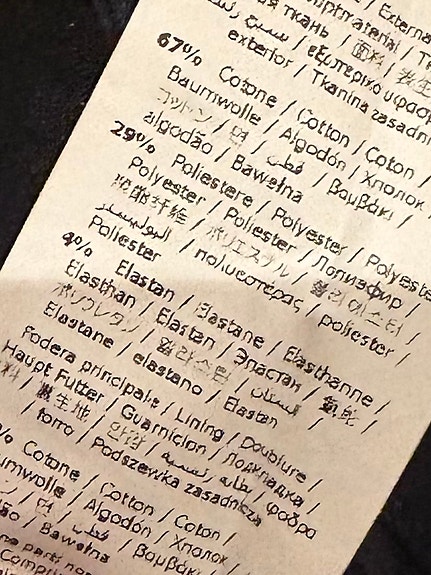 / External
mptmaterial / T
ая ткань / 面料 /
εξωτερικό υφασμ
exterior / Tkanina zasadni
67% Cotone / Cotton / Coton /
Baumwolle / Algodón / Хлопок /
コットン / 면 / قطن / Βαμβάκι /
algodão / Bawełna
29% Poliestere / Polyester / Polyeste
Polyester / Poliester / Полиэфир /
ポリエステル / 폴리에스터 /
البوليستر / πολυεστέρας / poliéster /
Poliester
4% Elastan / Elastane / Elasthanne /
Elasthan / Elastan / Эластан /
ポリウレタン / 엘라스터 / الستان /
Elastane / elastano / Elastan
Fodera principale / Lining / Doublure /
Haupt Futter / Guarnicion / Подкладка /
料 / 裏生地 / 안감 / بطانة رئيسية / φόδρα
/ forro / Podszewka zasadnicza
% Cotone / Cotton / Coton /
umwolle / Algodón / Хлопок /
ン / 면 / قطن / Βαμβάκι /
ão / Bawełna